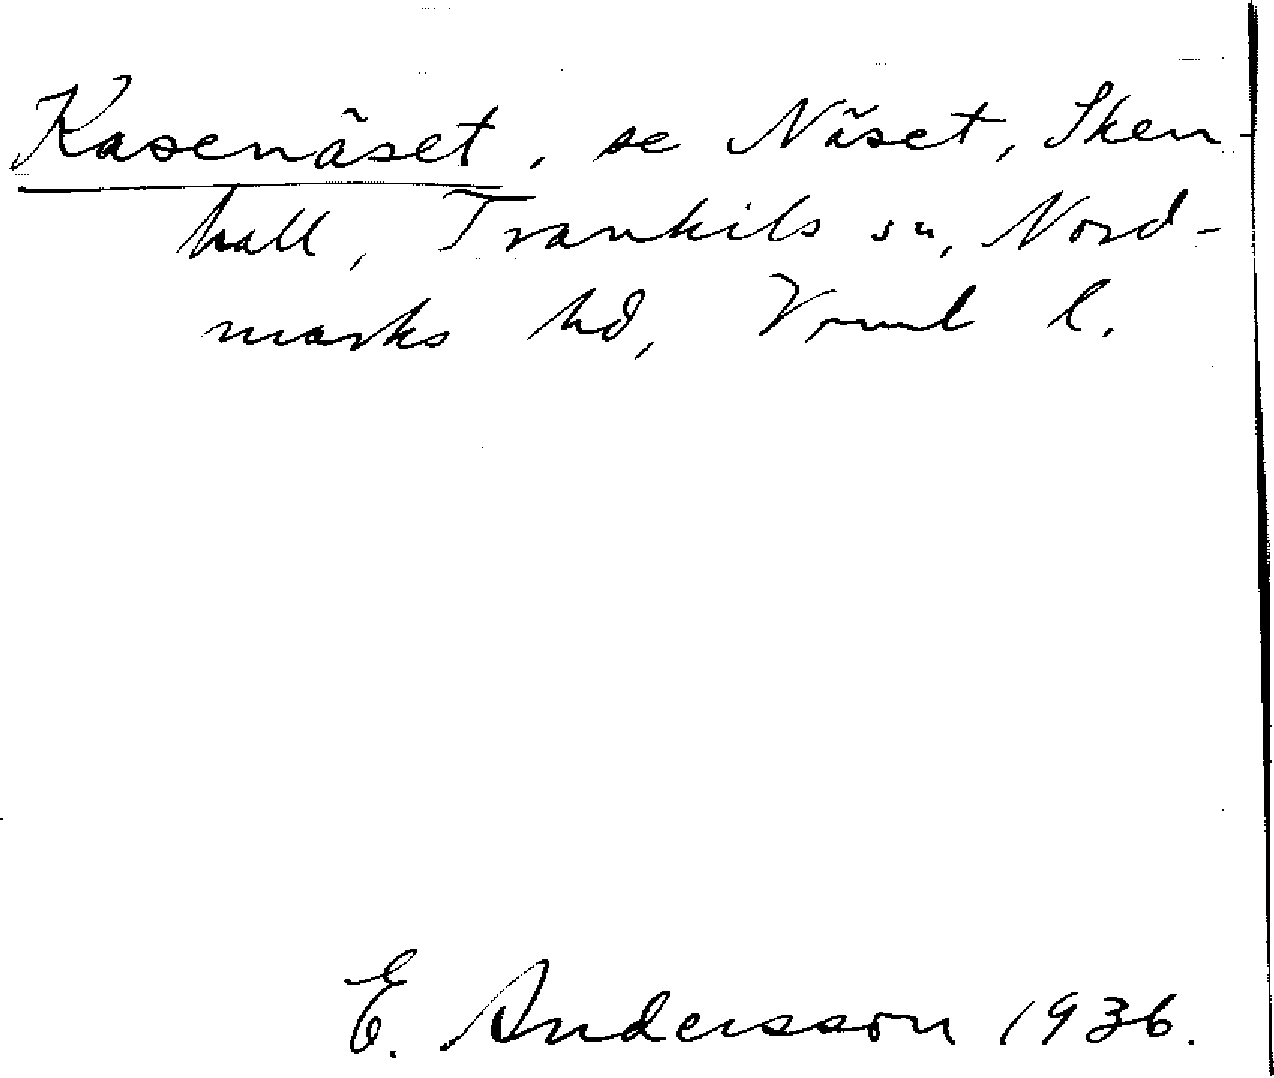 Kasenäset, se Näset, Sken-
hall, Trankils sn, Nord-
marks hd, Vrml l.
E. Andersson 1936.